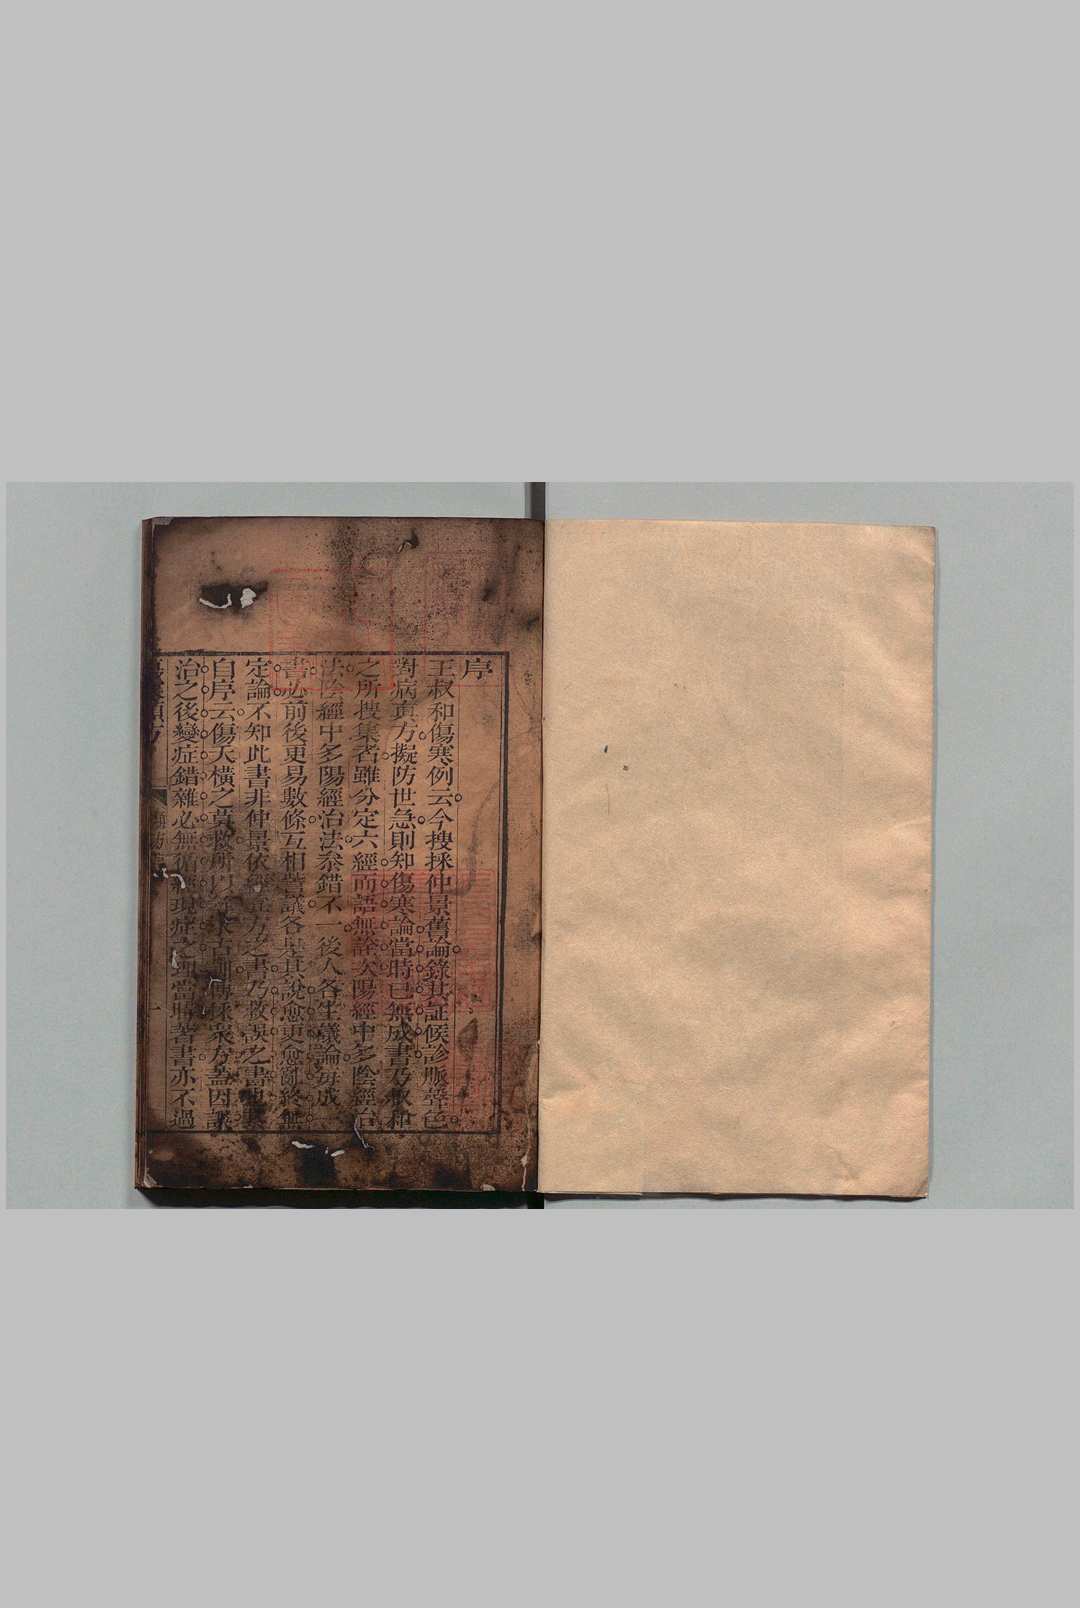 序
王叔和傷寒例云今搜採仲景舊論錄其証候診脈聲色
對病真方擬防世急則知傷寒論當時已無成書乃叔和
之所搜集者雖分定六經而語無詮次陽經中多陰經治
法陰經中多陽經治法參錯不一後人各生議論每成一
書必前後更易數條互相訾議各是其說愈更愈亂終無
定論不知此書非仲景依經立方之書乃救誤之書也其
自序云傷夭橫之莫救所以勤求古訓博採衆方蓋因誤
治之後變症錯雜必無循經現症之理當時著書亦不過
傷寒類方
序
一